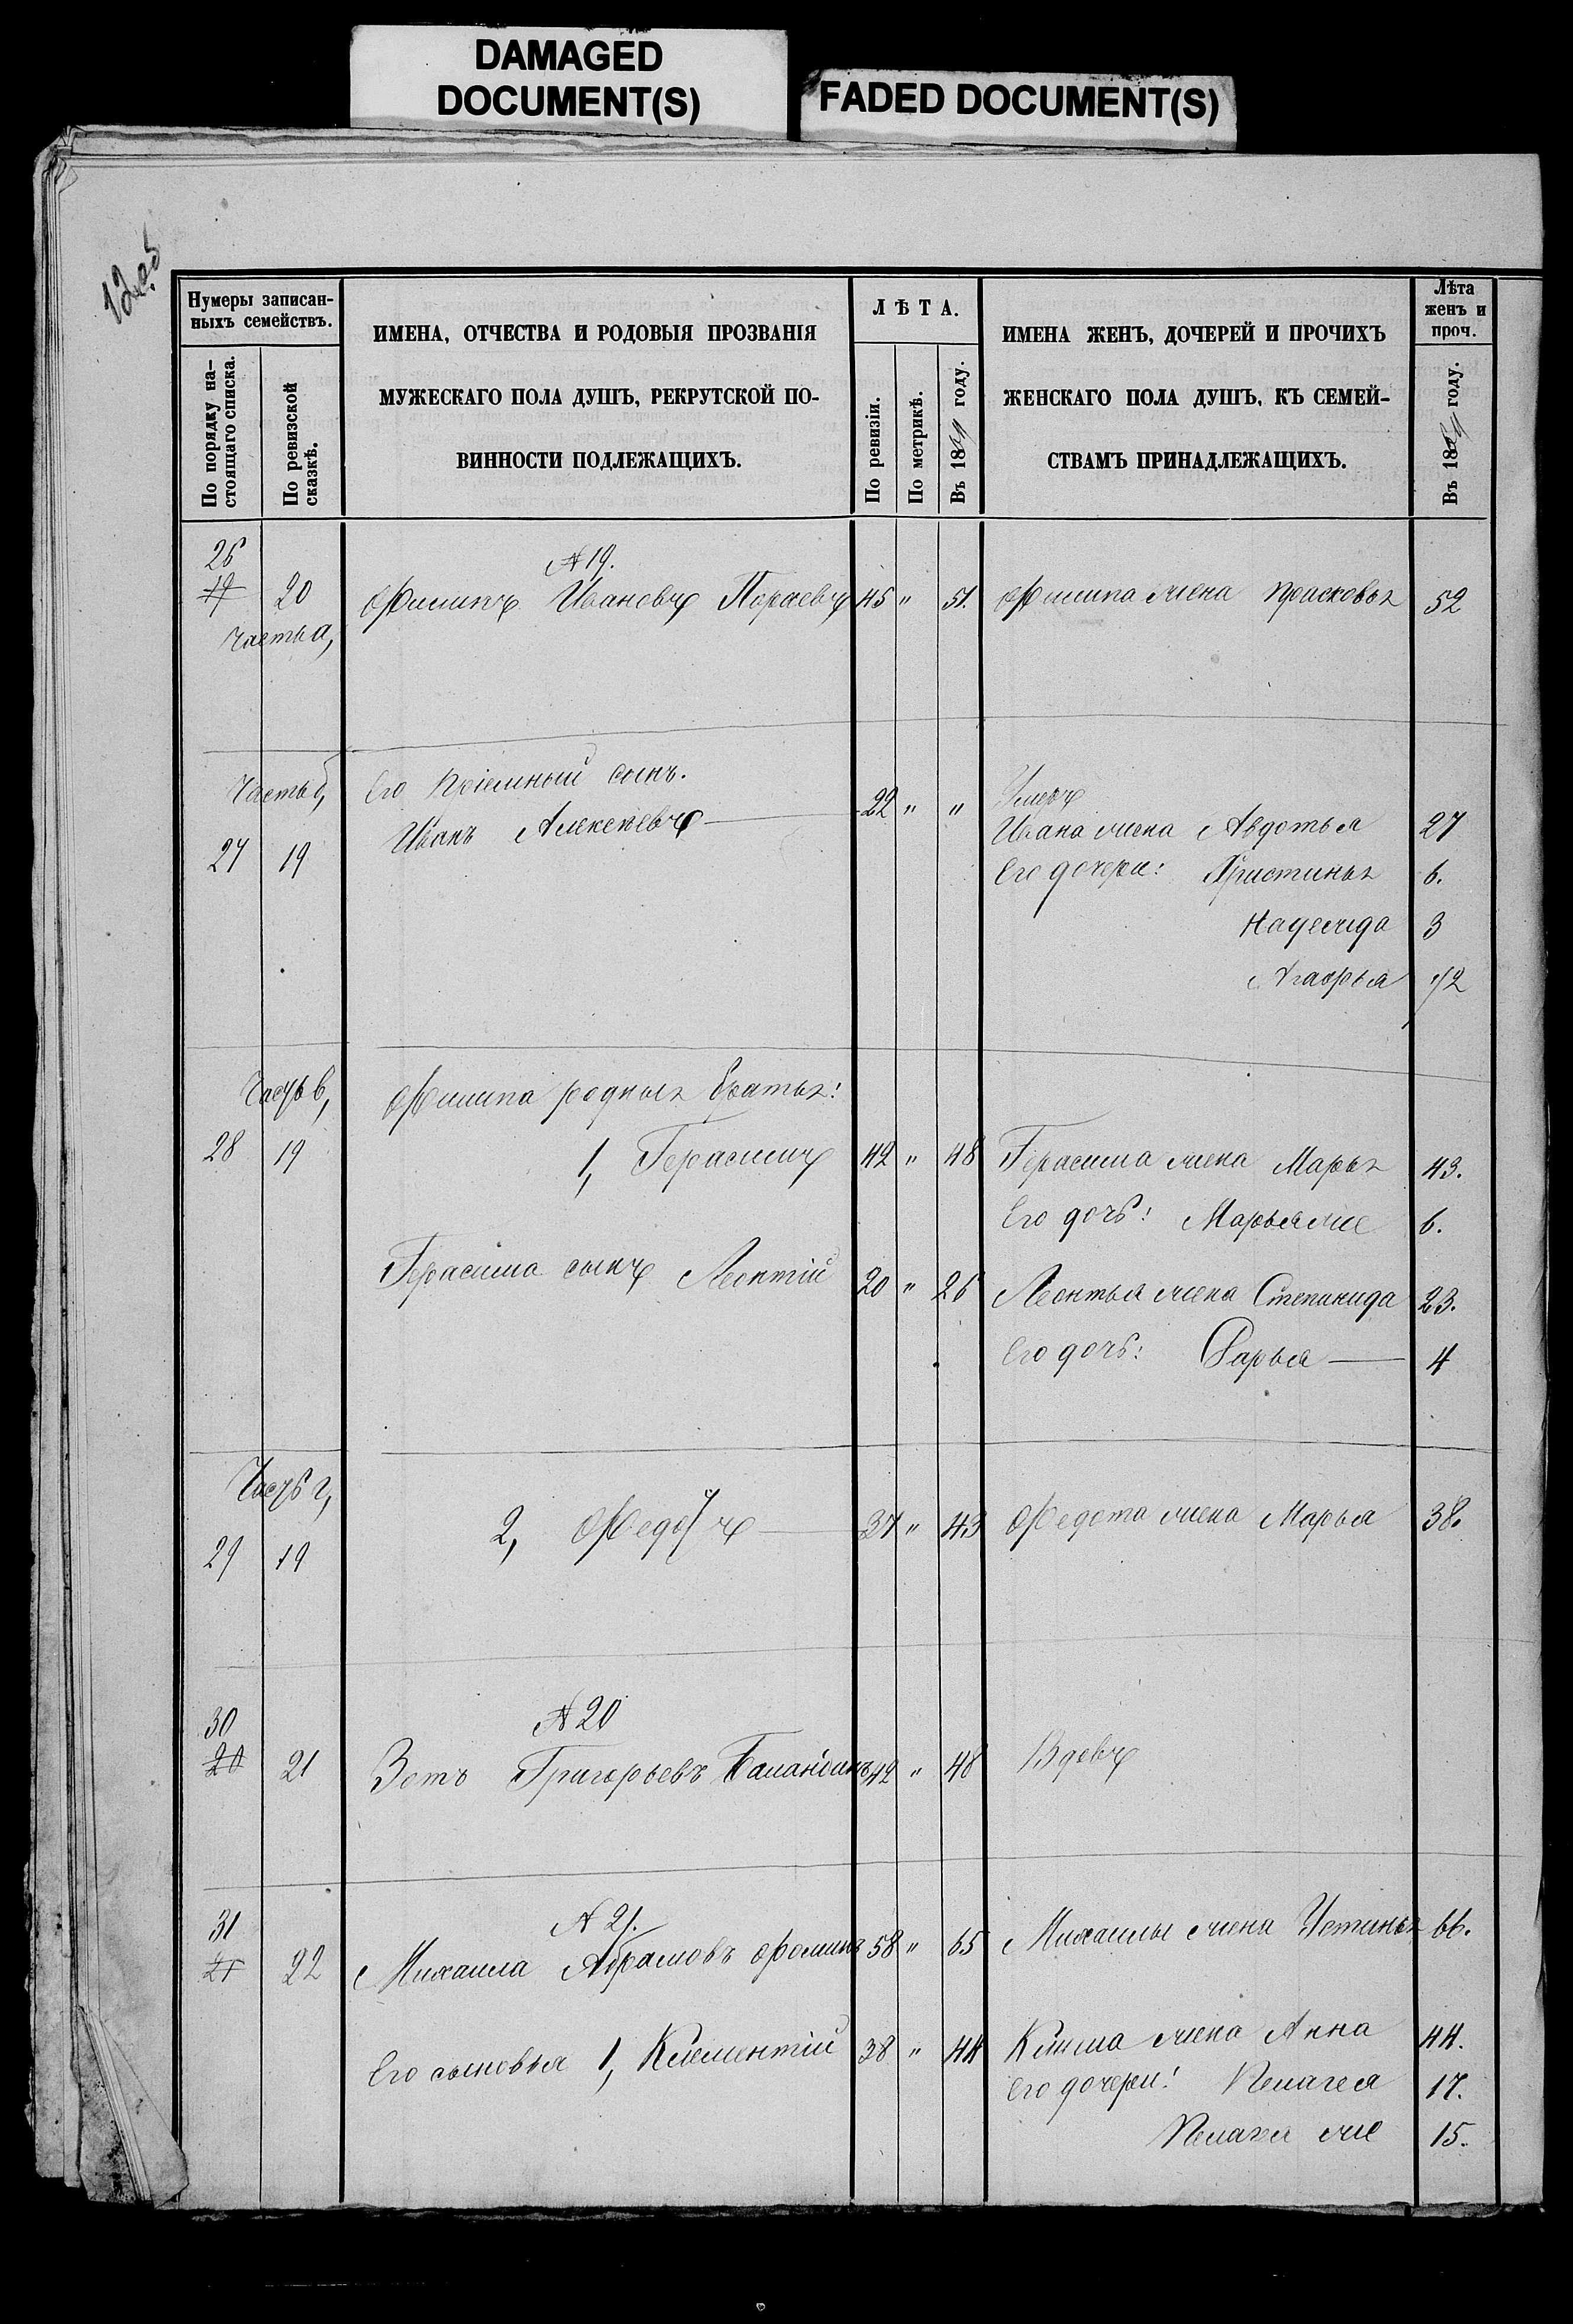 DAMAGED
DOCUMENT(S)
FADED DOCUMENT(S)
Нумеры записан-
ныхъ семействъ.
По порядку на-
стоящаго списка.
По ревизской
сказкѣ.
ИМЕНА, ОТЧЕСТВА И РОДОВЫЯ ПРОЗВАНІЯ
МУЖЕСКАГО ПОЛА ДУШЪ, РЕКРУТСКОЙ ПО-
ВИННОСТИ ПОДЛЕЖАЩИХЪ.
ЛѢТА.
По ревизіи.
По метрикѣ.
Въ 1864 году.
ИМЕНА ЖЕНЪ, ДОЧЕРЕЙ И ПРОЧИХЪ
ЖЕНСКАГО ПОЛА ДУШЪ, КЪ СЕМЕЙ-
СТВАМЪ ПРИНАДЛЕЖАЩИХЪ.
Лѣта
женъ и
проч.
Въ 1864 году.
26
№ 19.
19 20 Филипъ Ивановъ 45 " 51. Филипа жена Прасковья 52
Часть а,
Часть б, Его пріемный сынъ. Умеръ
Иванъ Алексѣевъ 22 " " Ивана жена Авдотья 27
27 19 Его дочери: Христинья 6.
Надежда 3
Агафья 1/2
Часть в, Филипа родныя братья:
28 19 1, Герасимъ 42 " 48 Герасима жена Марья 43.
Его дочь: Марья же 6.
Герасима сынъ Леонтій 20 " 26 Леонтья жена Степанида 23.
Его дочь: Дарья 4
Часть г,
29 19 2, Федотъ 37 " 43 Федота жена Марья 38.
30
№ 20
20 21 Зотъ Григорьевъ 42 " 48 Вдовъ
31
№ 21.
21 22 Михаила Абрамовъ Фоминъ 58 " 65 Михаилы жена Устинья 66.
Его сыновья 1, Клементій 38 " 44 Клима жена Анна 44.
Его дочери: Пелагея 17.
Пелагея же 15.